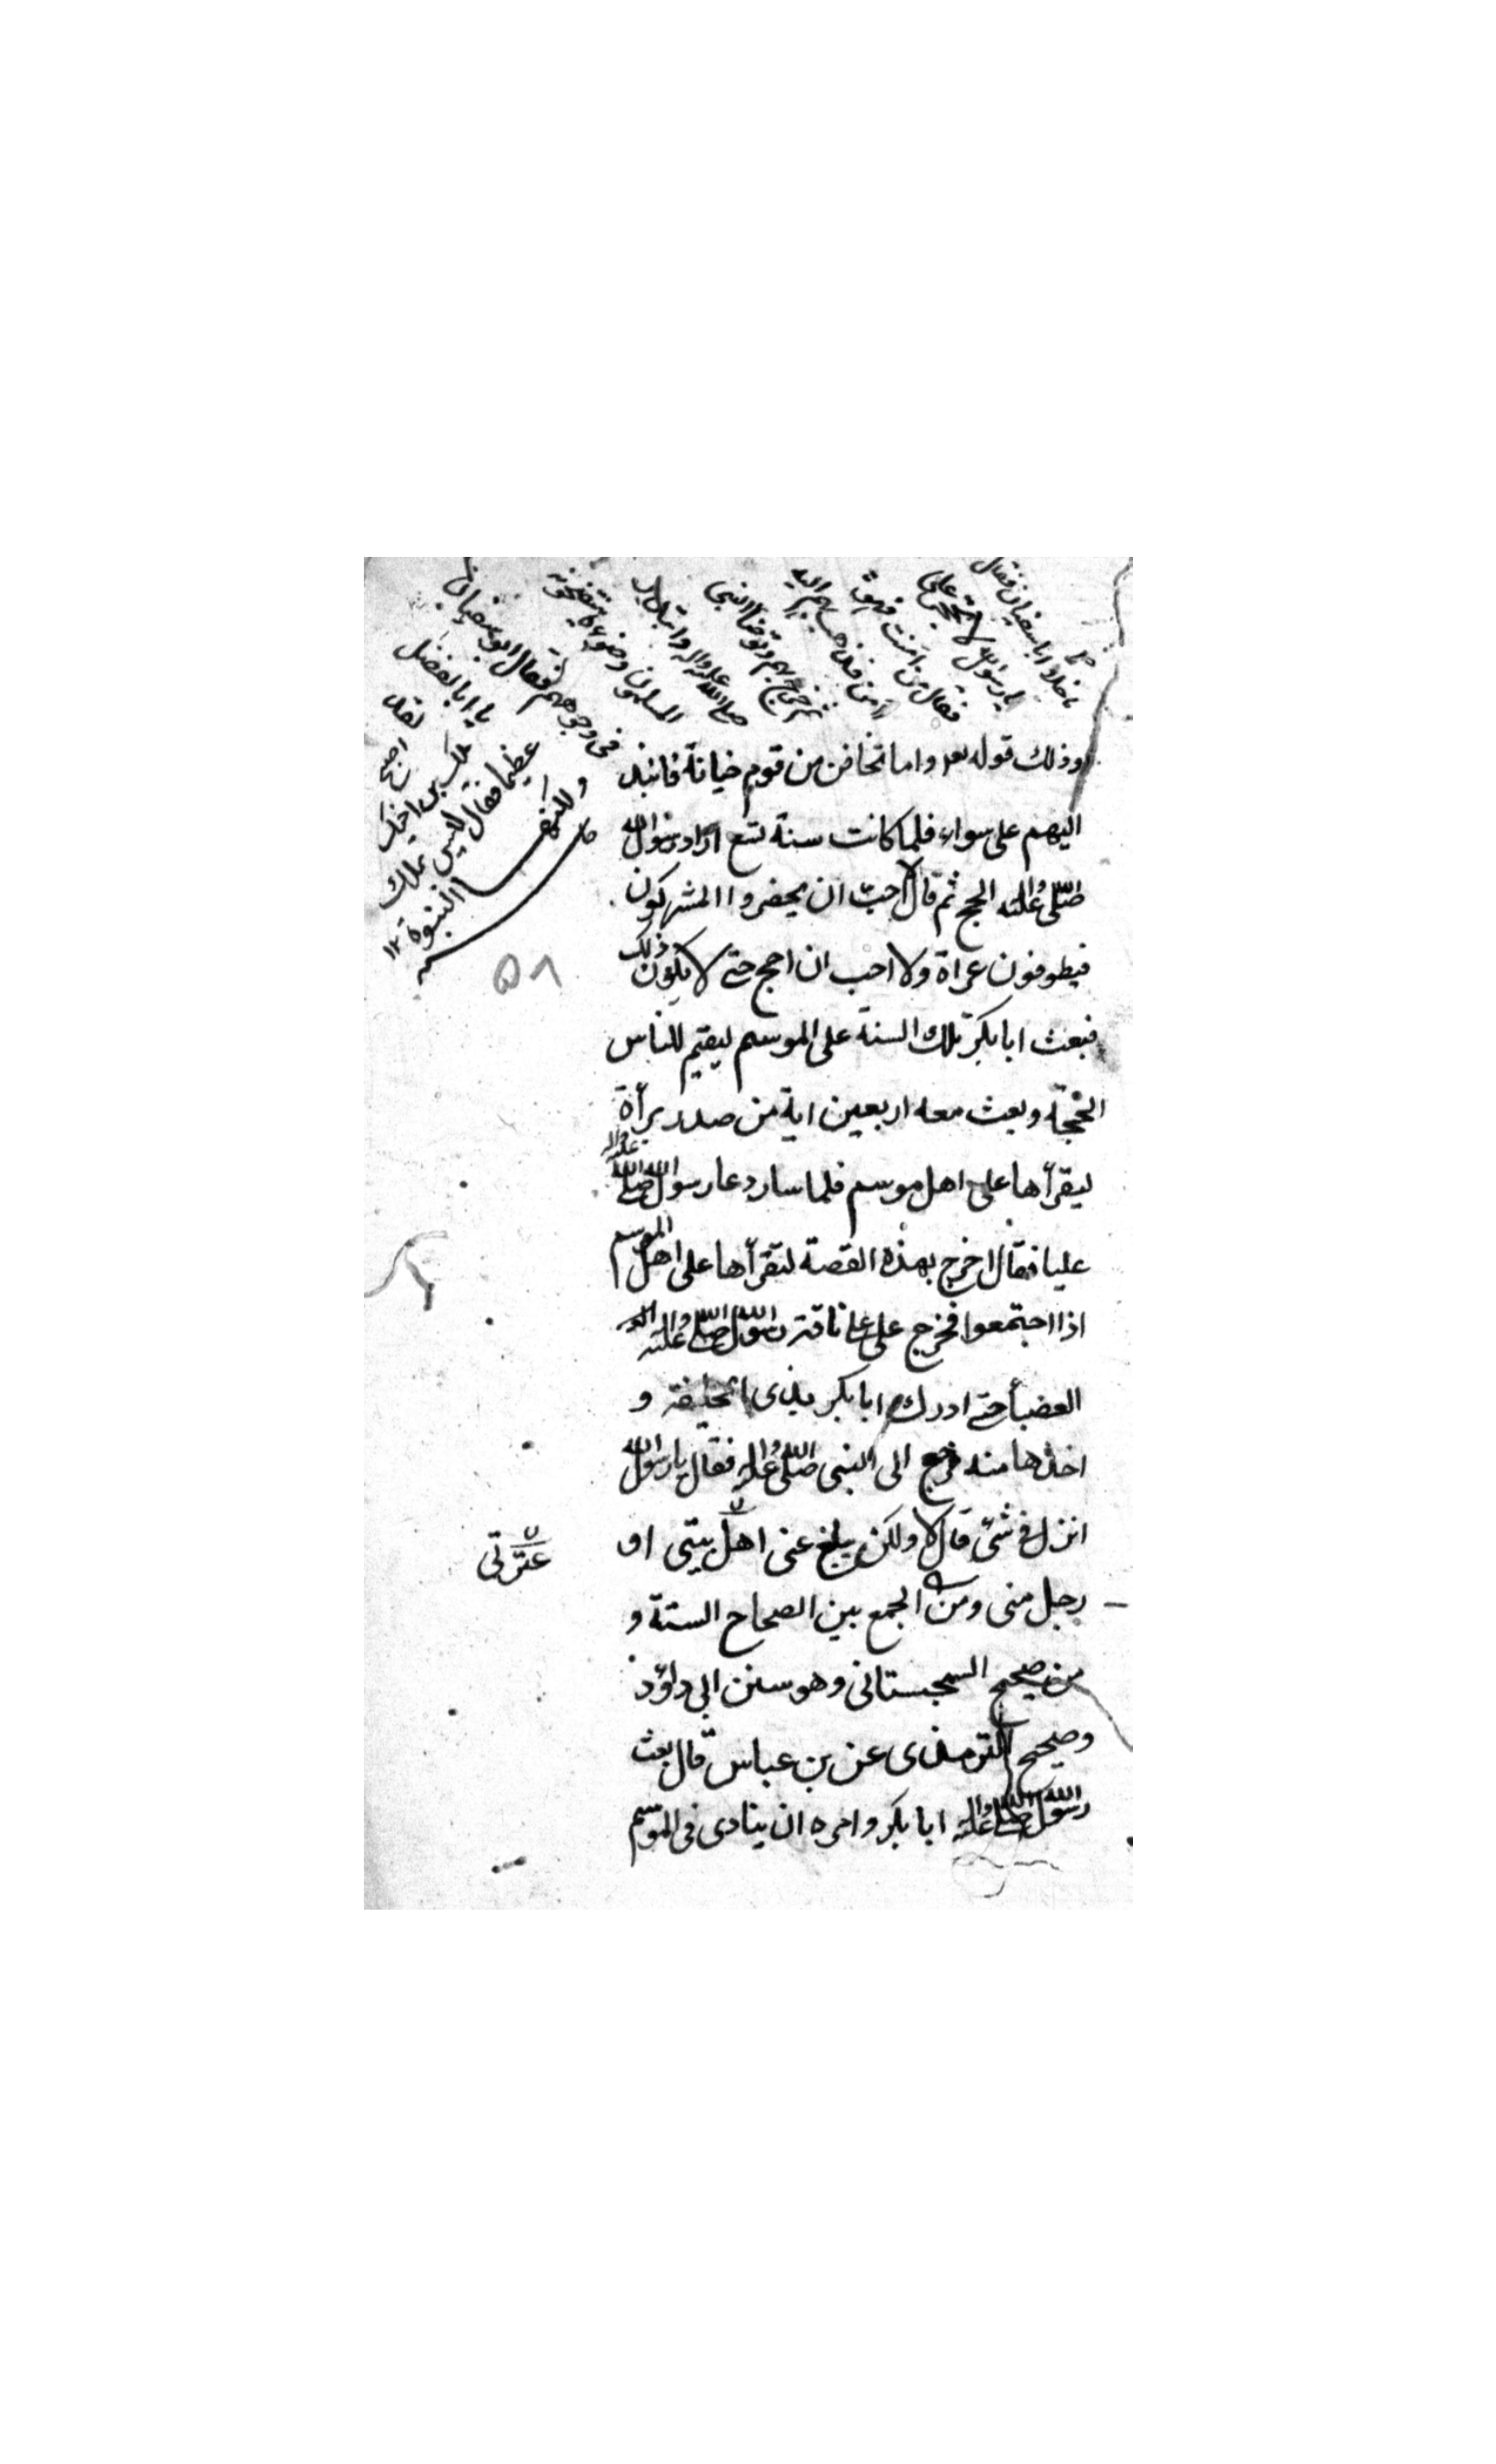 يا رسول الله
فقال من امنت فهو
امن
صلى الله عليه واله
المسلمون
فى وجوههم فقال ابو سفيان
يا ابا الفضل
لقد
اصبح
ملك بن اخيك
عظيما فقال ليس بملك
ولكنها
النبوة ١٢
وذلك قوله تعه واما تخافن من قوم خيانة فانبذ
اليهم على سواء فلما كانت سنة تسع اراد رسول الله
صلى الله عليه واله الحج ثم قال لا احب ان يحضروا المشركون
فيطوفون عراة ولا احب ان احج حتى لا يكون ذلك
٥٨
فبعث ابا بكر تلك السنة على الموسم ليقيم للناس
الحجة وبعث معه اربعين اية من صدر برأة
ليقرأها على اهل موسم فلما سار دعا رسول الله صلى الله عليه واله
عليا فقال اخرج بهذه القصة لتقرأها على اهل الموسم
اذا اجتمعوا فخرج على ع على ناقة رسول الله صلى الله عليه واله
العضبأ حتى ادرك ابا بكر بذى الحليفة و
اخذها منه فرجع الى النبى صلى الله عليه واله فقال يا رسول الله
انزل فى شئ قال لا ولكن يبلغ عنى اهل بيتى او
عترتى
رجل منى ومن الجمع بين الصحاح الستة و
من صحيح السجستانى وهو سنن ابى داؤد
وصحيح الترمذى عن بن عباس قال بعث
رسول الله صلى الله عليه واله ابا بكر وامره ان ينادى فى الموسم